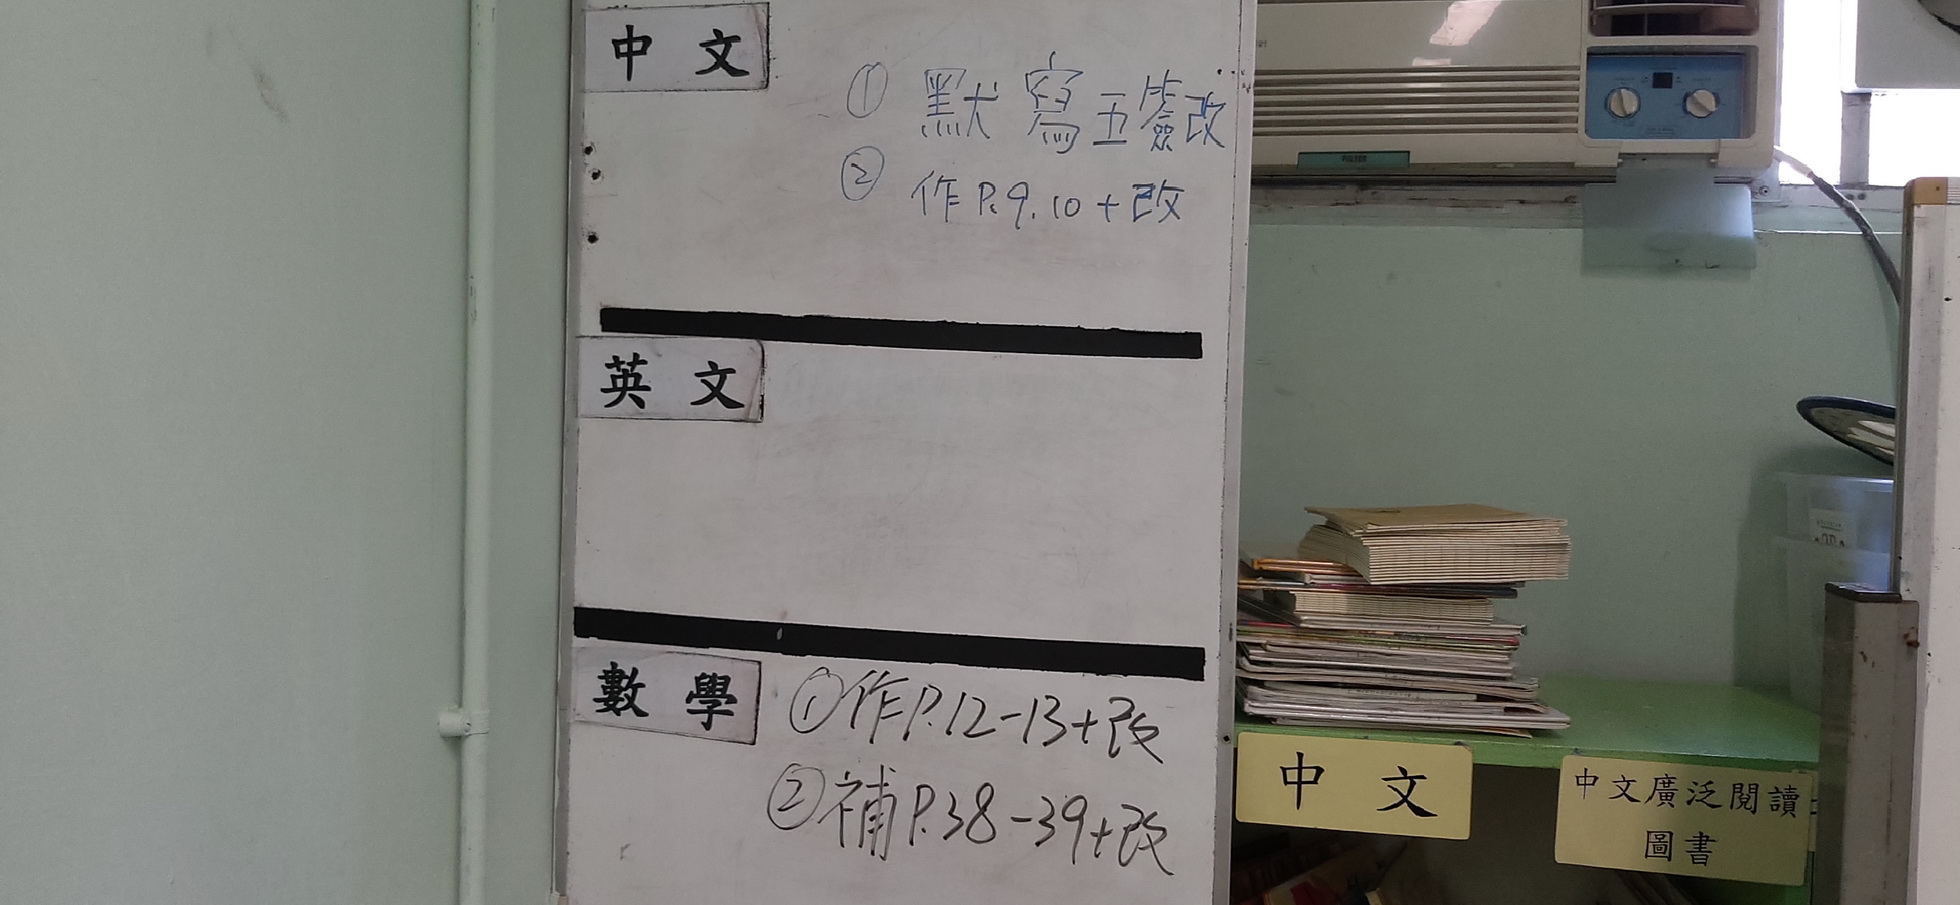 中文
① 默寫五簽改
② 作P.9.10+改
英文
數學
①作P.12-13+改
②補P.38-39+改
中文
中文廣泛閱讀
圖書